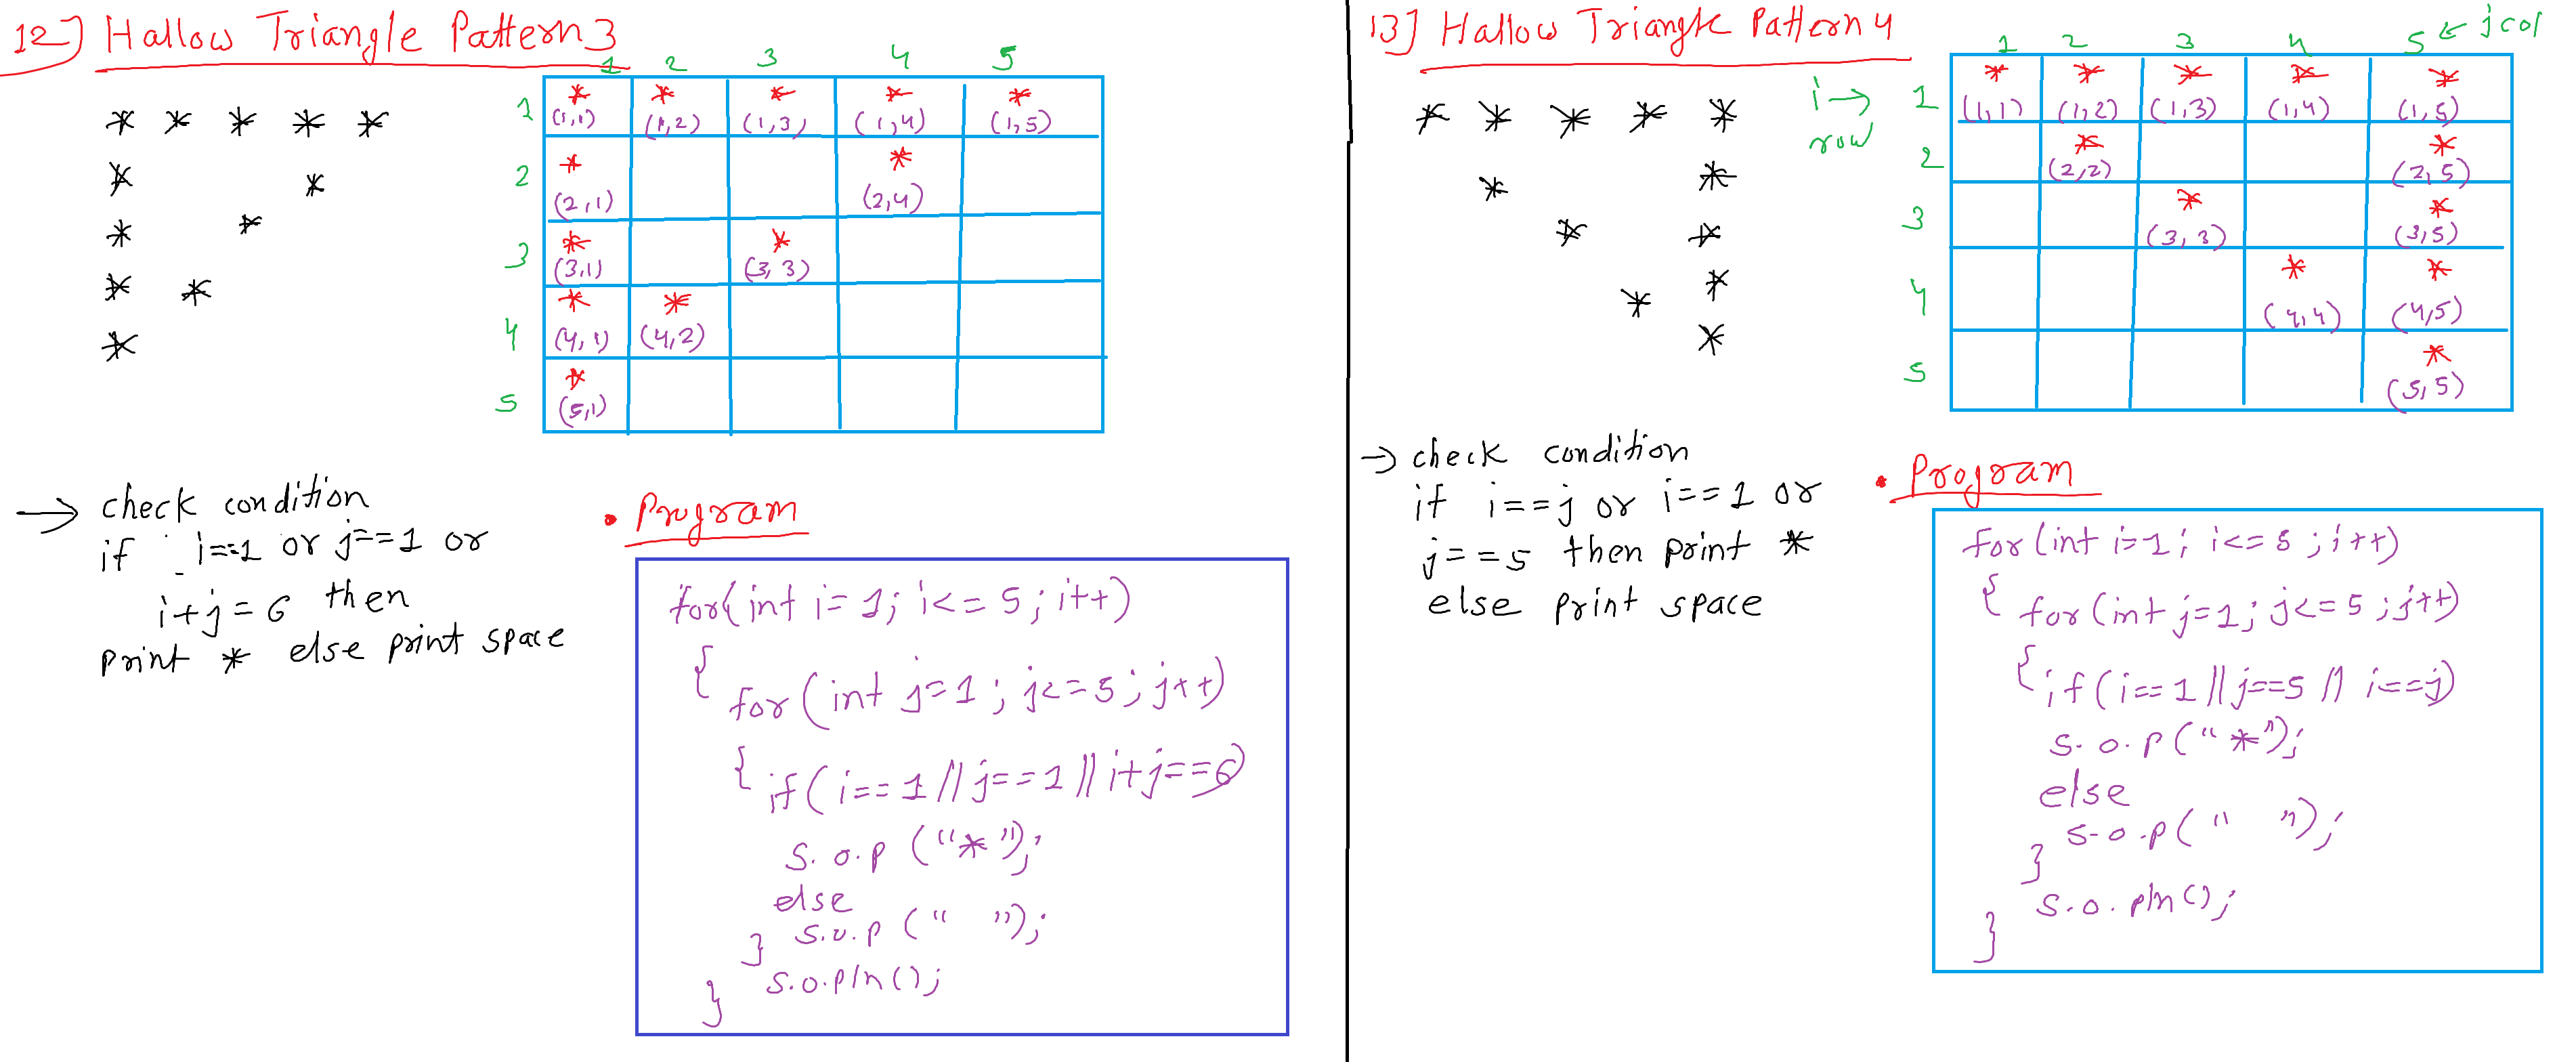 12] Hallow Triangle Pattern 3
* * * * *
* *
* *
* *
*
1 2 3 4 5
1 * * * * *
(1,1) (1,2) (1,3) (1,4) (1,5)
2 * *
(2,1) (2,4)
3 * *
(3,1) (3,3)
4 * *
(4,1) (4,2)
5 *
(5,1)
→ check condition
if i==1 or j==1 or
i+j=6 then
print * else print space
• Program
for(int i=1; i<=5; i++)
{
for(int j=1; j<=5; j++)
{ if(i==1 || j==1 || i+j==6)
S.o.p ("*");
else
} S.o.p (" ");
S.o.pln();
}
13] Hallow Triangle Pattern 4
* * * * *
* *
* *
* *
*
i → row
1 2 3 4 5 ← j col
1 * * * * *
(1,1) (1,2) (1,3) (1,4) (1,5)
2 * *
(2,2) (2,5)
3 * *
(3,3) (3,5)
4 * *
(4,4) (4,5)
5 *
(5,5)
→ check condition
if i==j or i==1 or
j==5 then print *
else print space
• Program
for(int i=1; i<=5; i++)
{ for(int j=1; j<=5; j++)
{ if(i==1 || j==5 || i==j)
S.o.p("*");
else
} S.o.p(" ");
S.o.pln();
}